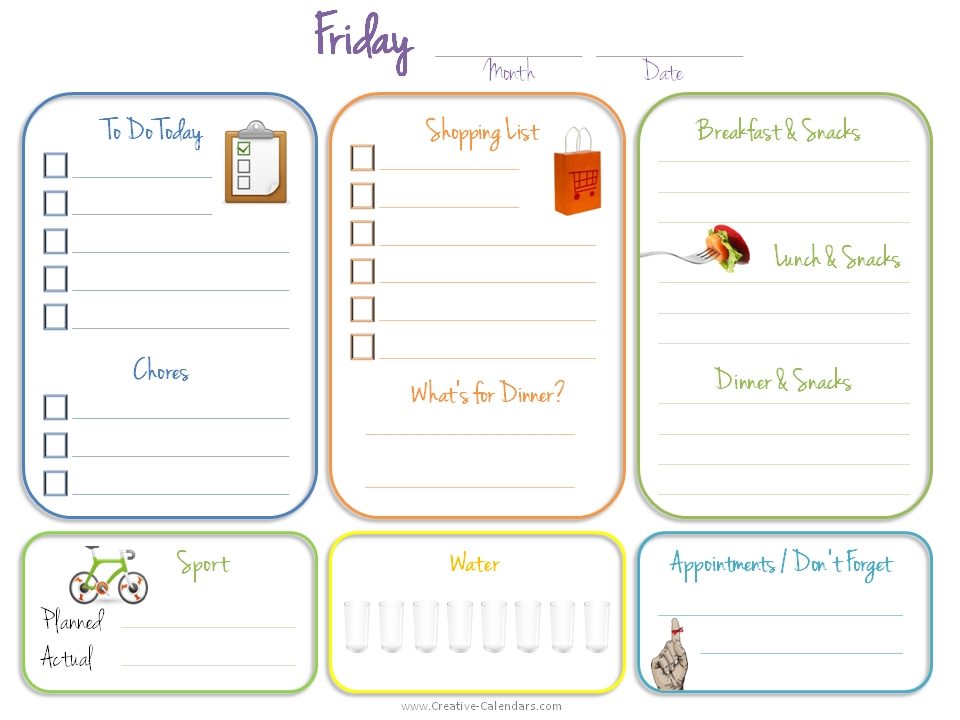 Friday
Month Date
To Do Today
Chores
Shopping List
What's for Dinner?
Breakfast & Snacks
Lunch & Snacks
Dinner & Snacks
Sport
Planned
Actual
Water
Appointments / Don't Forget
www.Creative-Calendars.com